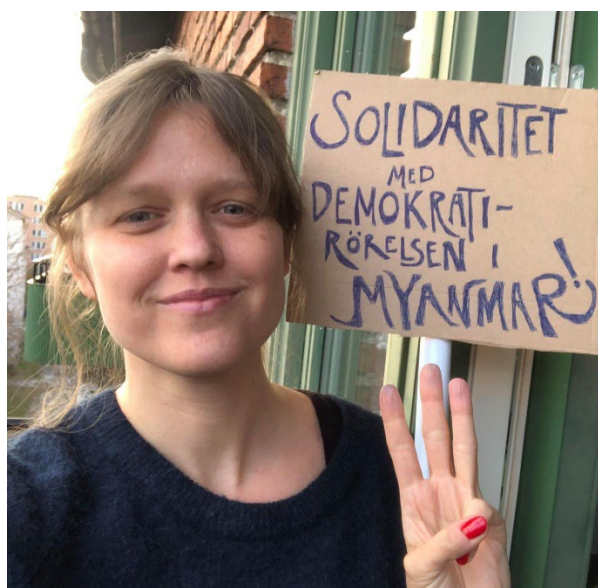 SOLIDARITET
MED
DEMOKRATI-
RÖRELSEN I
MYANMAR!